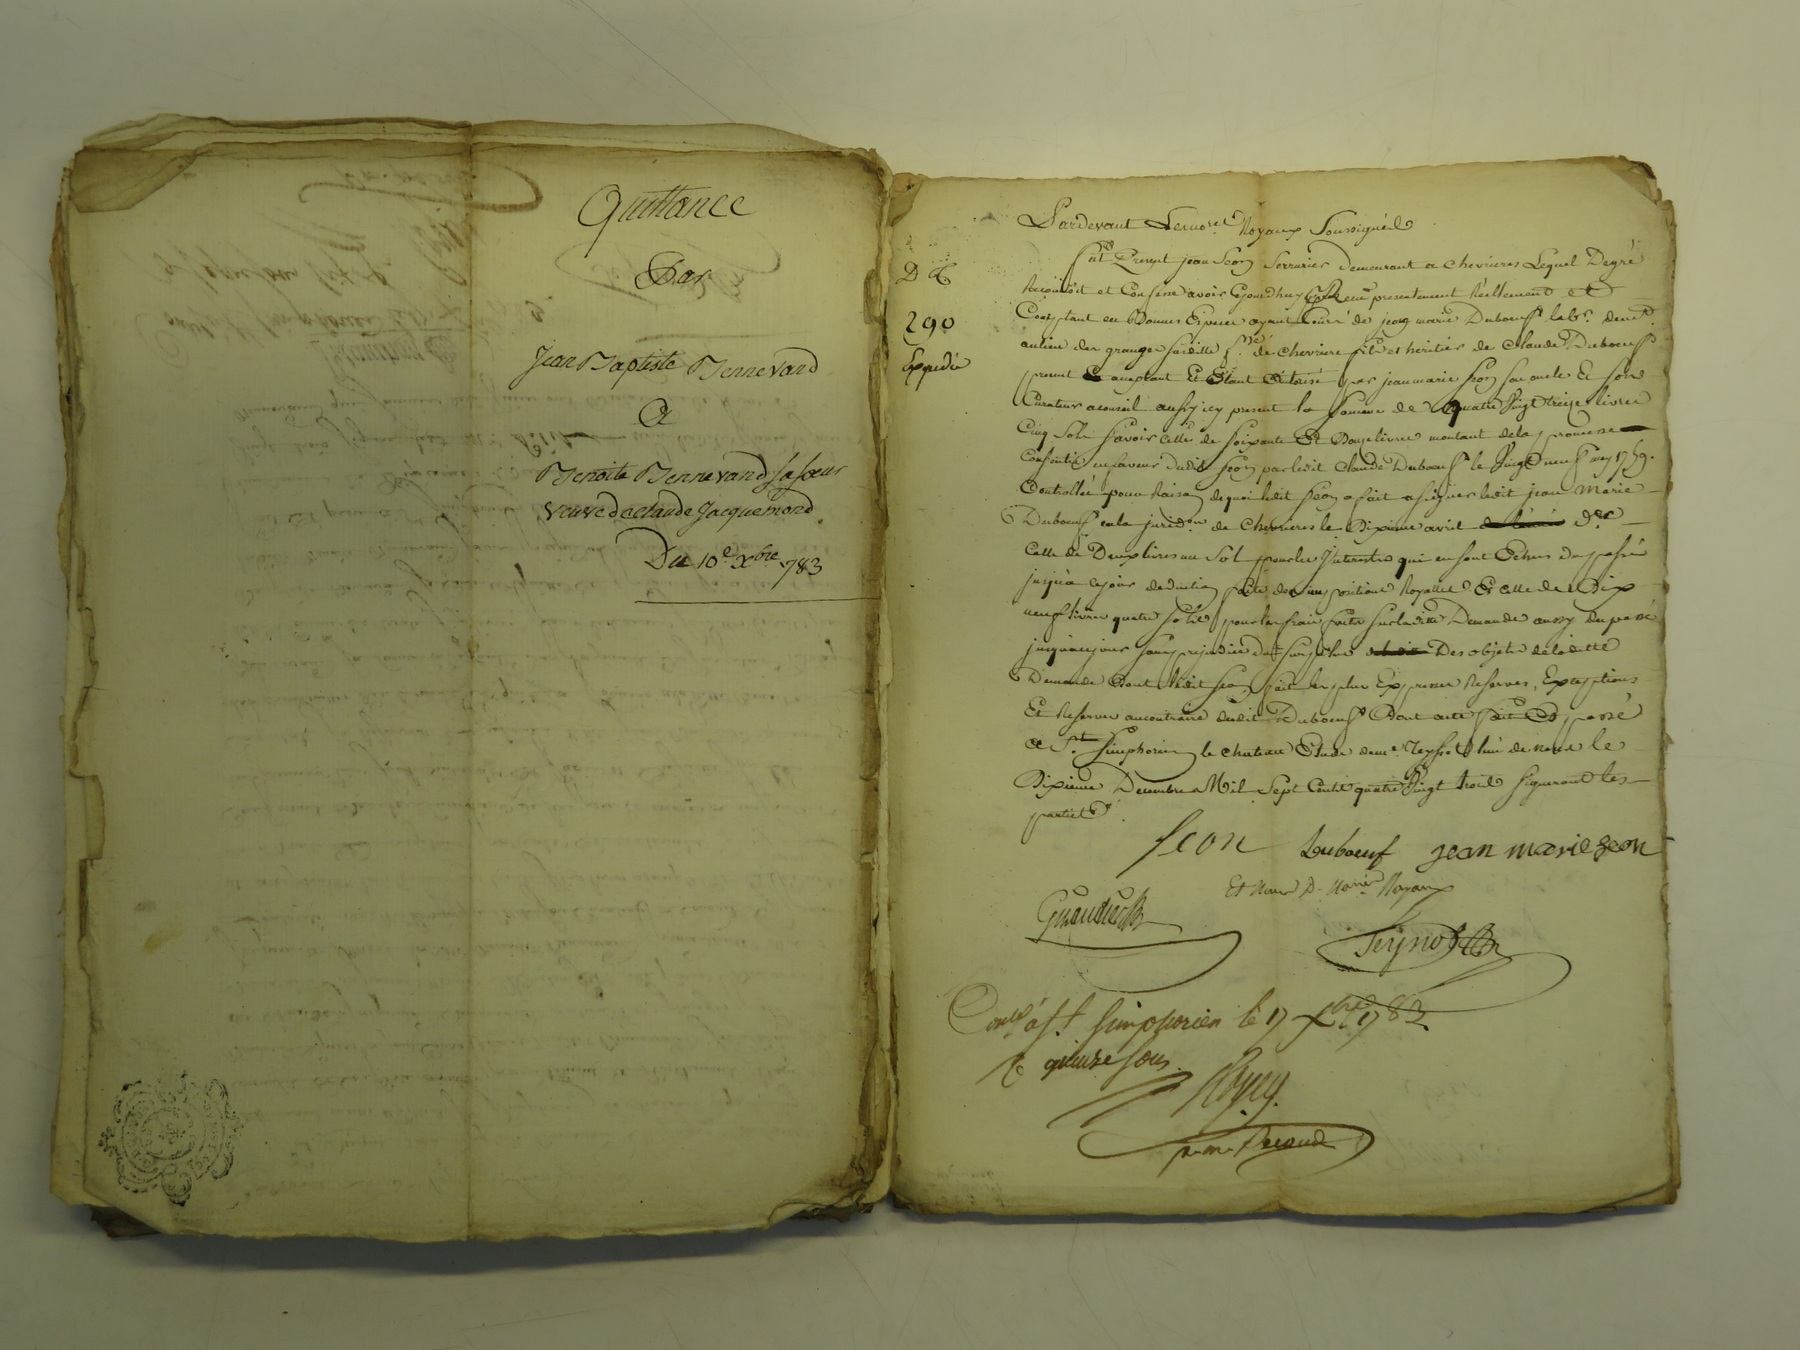 Quittance
Par
Jean Baptiste Bennevand
A
Benoite Bennevand sa sœur
veuve de claude Jacquemond
Du 10e xbre 1783
Pardevant Les nores Royaux Soussignés
fut Present jean seon serrurier demeurant a chevrieres Lequel De gré
Reconnoit et Confesse avoir cejourdhuy recu presentement Reellement et
Comptant en Bonnes Especes ayant Cours de jean marie Duboeuf labr. demt.
au lieu des granges susditte psse de chevriere fils et heritier de Claude Duboeuf
present acceptant Et Etant authorisé par jean marie seon son oncle Et son
Curateur a conseil aussy icy present la somme de quatre Vingt treize livres
Cinq Sols savoir Celle de soixante Et Douze livres montant de la promesse
Consentie en faveur dudit seon par ledit Claude Duboeuf le Vingt neuf may 1759.
Controllée pour Raison de quoi ledit seon a fait assigner ledit jean Marie
Duboeuf en la juridon de Chevrieres le Dixieme avril der
Celle de Deux livres un Sol pour les Interestes qui en sont Echus du passé
jusqu'a ce jour deduction faite des impositions Royalles Et celle de Dix
neuf livres quatre sols pour les frais faits sur laditte Demande aussy du passé
jusqu'a ce jour sans prejudice du surplus Des objets de laditte
Demande Dont ledit seon fait les plus Expresses Reserves, Exceptions
Et Reserves au contraire dudit Duboeuf Dont acte fait Et passé
a St. simphorien le chateau Etude de me Teynot l'un de nous le
Dixieme Decembre Mil Sept Cents quatre Vingt trois signeront les
parties.
D C
290
Expedié
seon Duboeuf jean marie seon
Et Nous D. Nores Royaux
Teynot
Conlé a st simphorien le 17 xbre 1783
R quinze sous